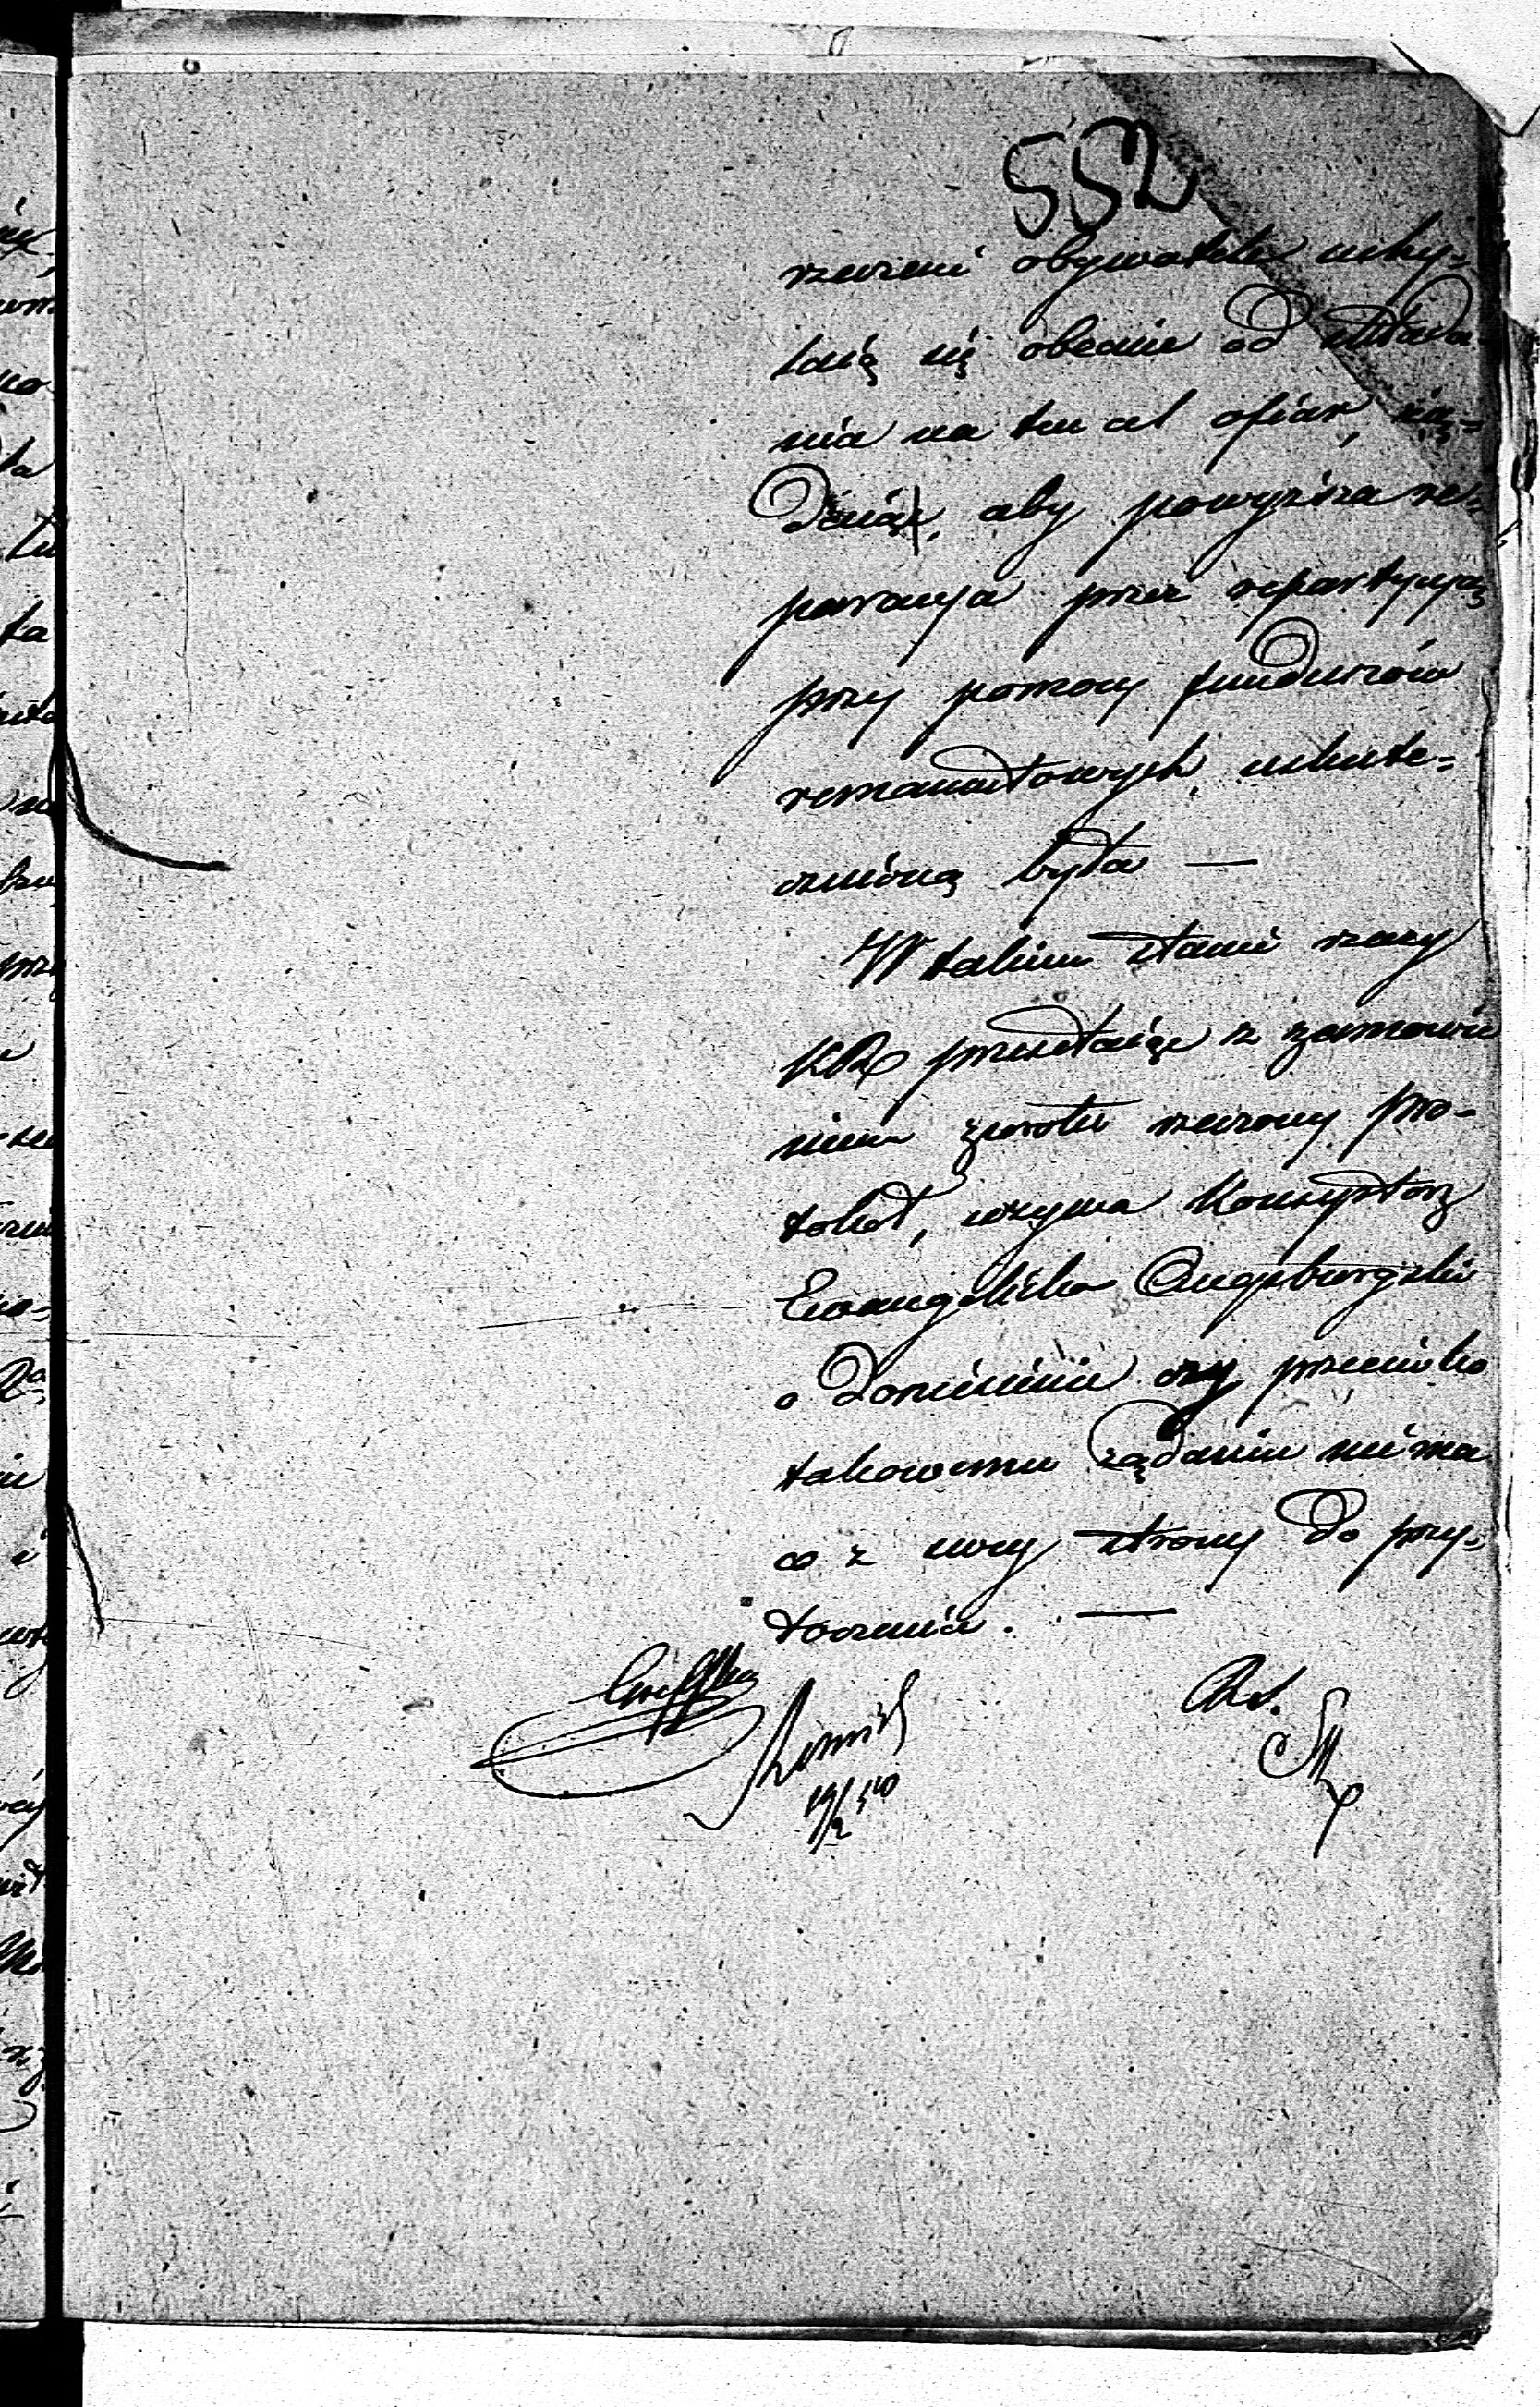 552
rzeczeni obywatele uchy-
laią się obecnie od składa
nia na ten cel ofiar, żą-
daiąc, aby powyższa re-
peracya przez repartycyą
przy pomocy funduszów
remanentowych, uskute-
cznioną była —
W takim stanie rzeczy
KR przesełaiąc z zamówie
niem zwrotu rzeczony pro-
tokół, wzywa Konsystorz
Ewangelicko Augsburgski
o doniesienie czy przeciwko
takowemu żądaniu nie ma
co z swey strony do przy-
toczenia. —
19/2